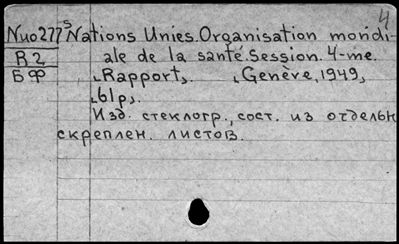 4
Nuo277⁵ Nations Unies. Organisation mondi-
B2 ale de la santé. Session. 4-me.
БФ „Rapport„. „Genève, 1949„
„61p„.
Изд. стеклогр., сост. из отдельн
скреплен. листов.